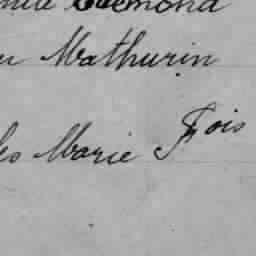 Edmond
Mathurin
les Marie Fois